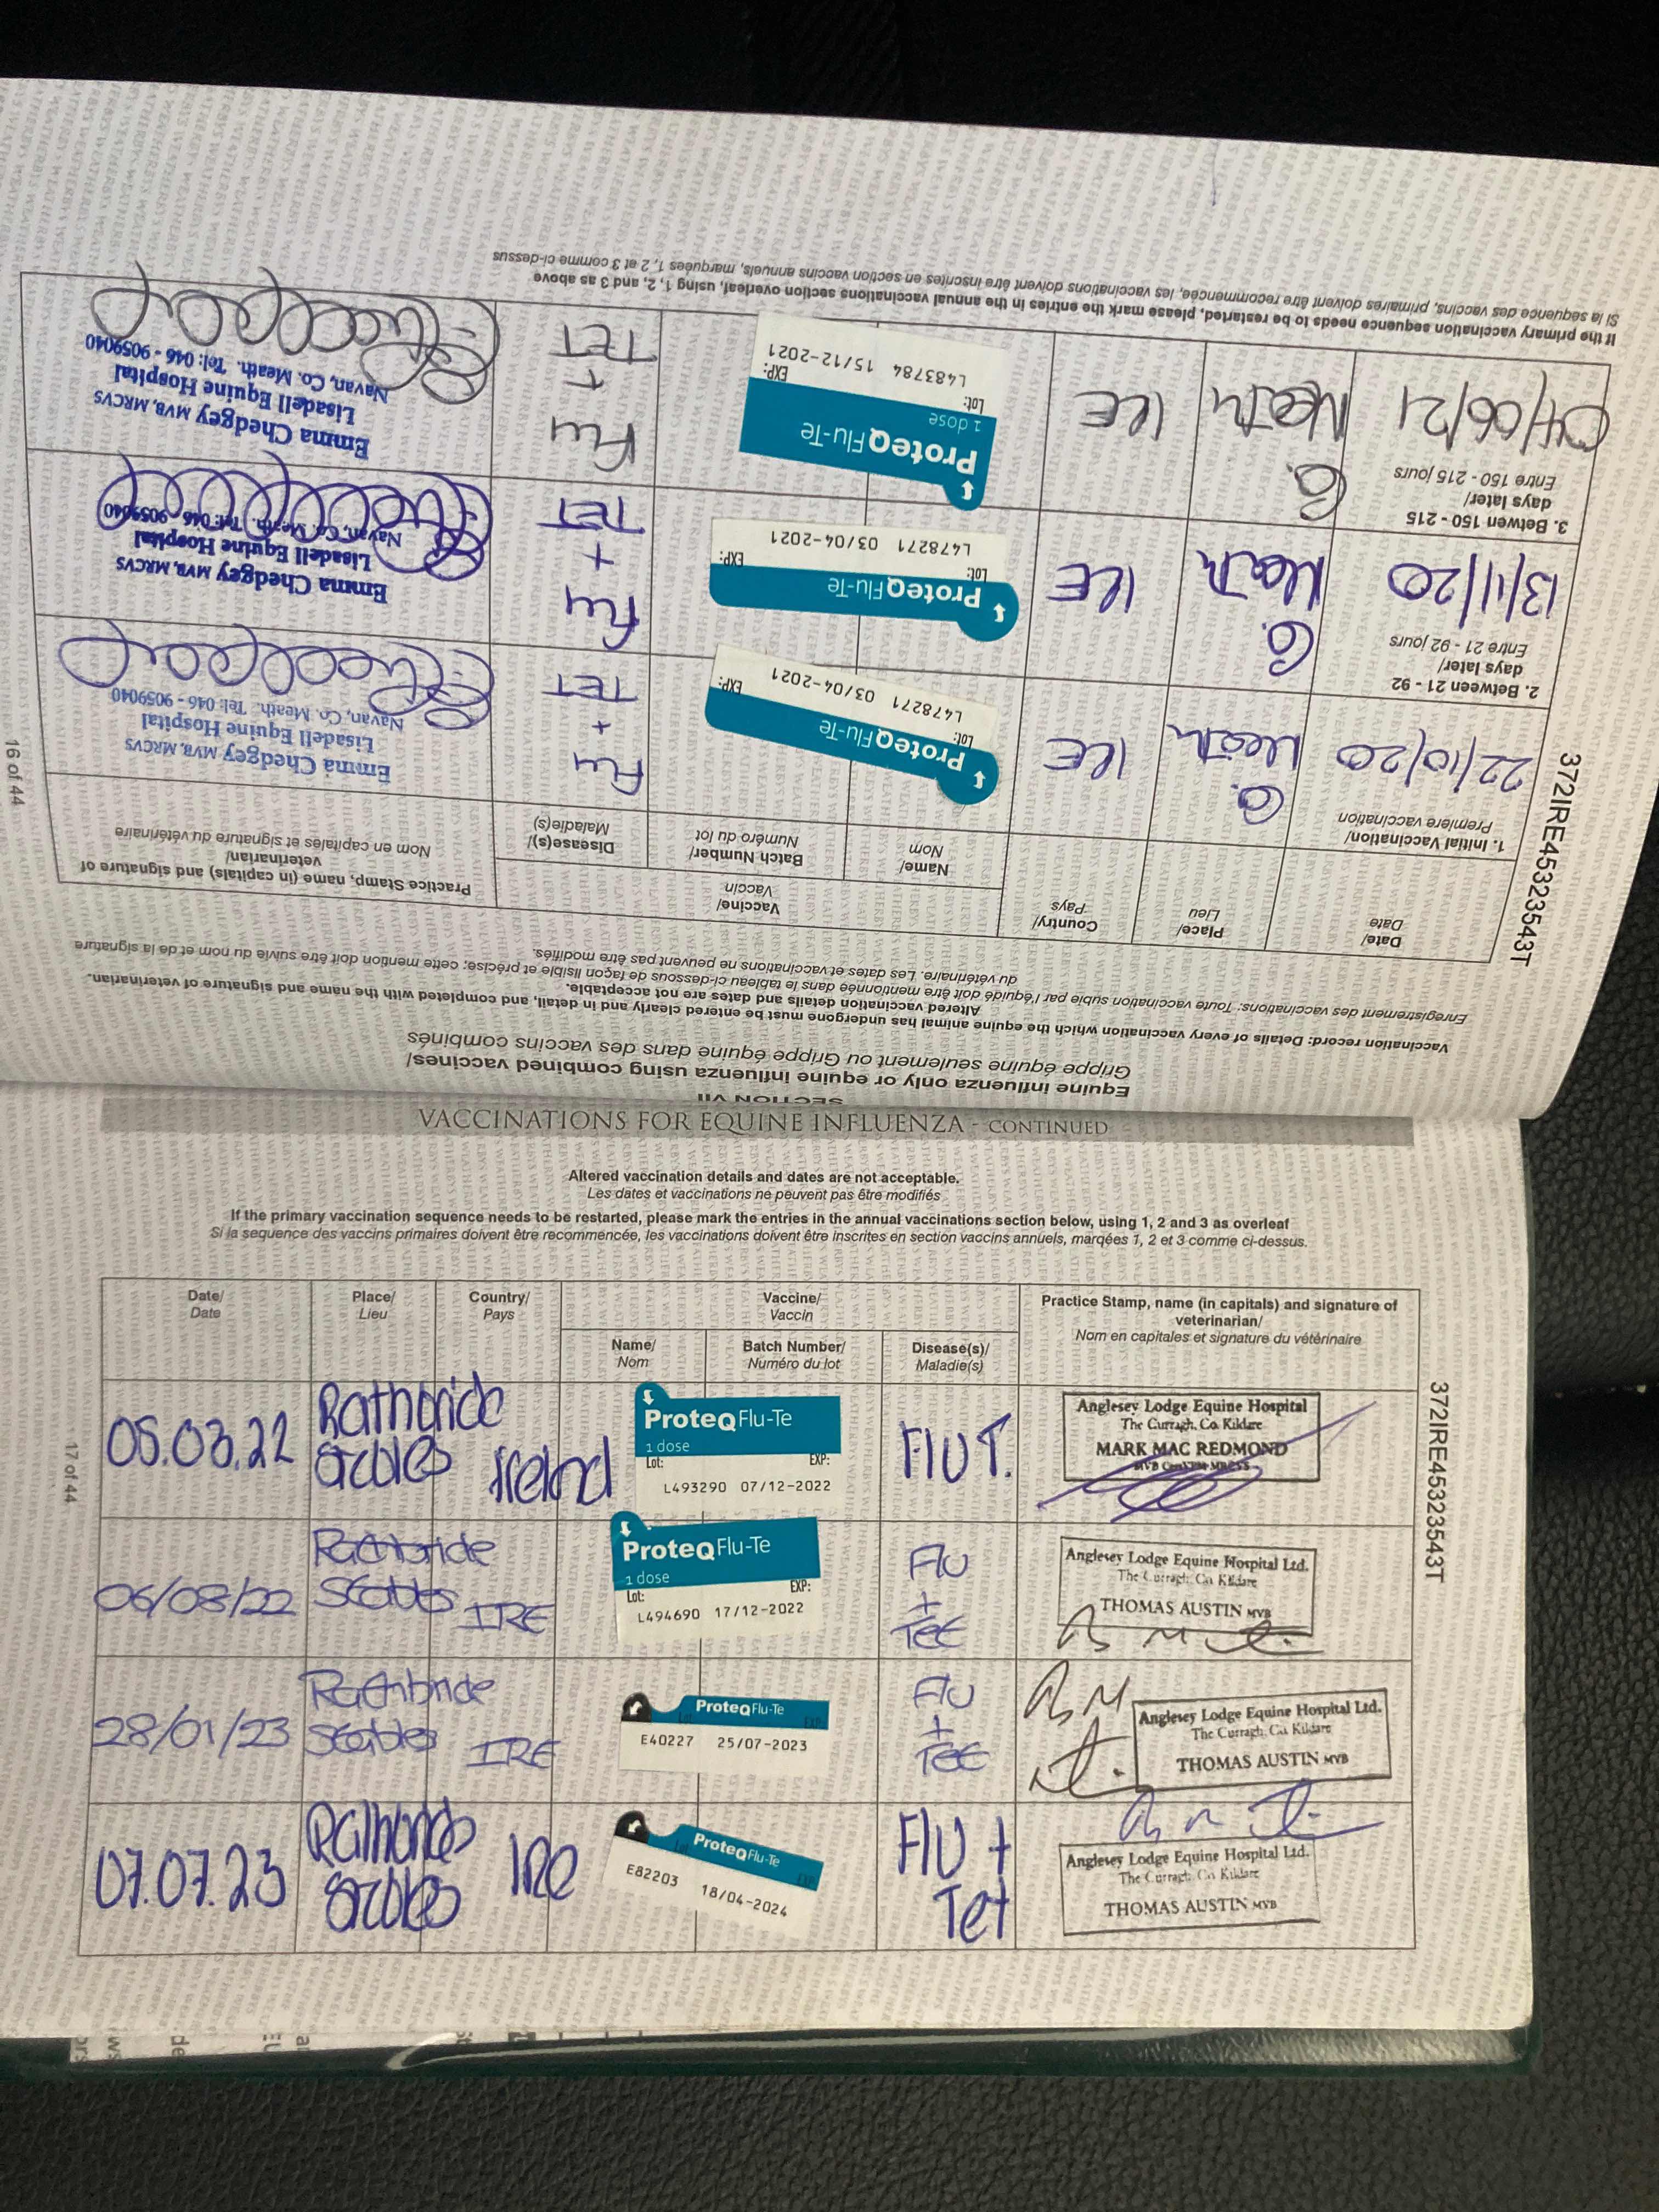 SECTION VII
Equine influenza only or equine influenza using combined vaccines/
Grippe équine seulement ou Grippe équine dans des vaccins combinés
Vaccination record: Details of every vaccination which the equine animal has undergone must be entered clearly and in detail, and completed with the name and signature of veterinarian.
Altered vaccination details and dates are not acceptable.
Enregistrement des vaccinations: Toute vaccination subie par l'équidé doit être mentionnée dans le tableau ci-dessous de façon lisible et précise; cette mention doit être suivie du nom et de la signature
du vétérinaire. Les dates et vaccinations ne peuvent pas être modifiés.
372IRE45323543T
Date/
Date
Place/
Lieu
Country/
Pays
Vaccine/
Vaccin
Name/
Nom
Batch Number/
Numéro du lot
Disease(s)/
Maladie(s)
Practice Stamp, name (in capitals) and signature of
veterinarian/
Nom en capitales et signature du vétérinaire
1. Initial Vaccination/
Première vaccination
22/10/20
Co.
Meath
IRE
ProteqFlu-Te
Lot: EXP:
L478271 03/04-2021
Flu
+
TET
Emma Chedgey MVB, MRCVS
Lisadell Equine Hospital
Navan, Co. Meath. Tel: 046 - 9059040
2. Between 21 - 92
days later/
Entre 21 - 92 jours
13/11/20
Co.
Meath
IRE
ProteqFlu-Te
Lot: EXP:
L478271 03/04-2021
Flu
+
TET
Emma Chedgey MVB, MRCVS
Lisadell Equine Hospital
Navan, Co. Meath. Tel: 046 - 9059040
3. Betwen 150 - 215
days later/
Entre 150 - 215 jours
04/06/21
Co.
Meath
IRE
ProteqFlu-Te
1 dose
Lot: EXP:
L483784 15/12-2021
Flu
+
TET
Emma Chedgey MVB, MRCVS
Lisadell Equine Hospital
Navan, Co. Meath. Tel: 046 - 9059040
If the primary vaccination sequence needs to be restarted, please mark the entries in the annual vaccinations section overleaf, using 1, 2, and 3 as above
Si la séquence des vaccins, primaires doivent être recommencée, les vaccinations doivent être inscrites en section vaccins annuels, marquées 1, 2 et 3 comme ci-dessus
16 of 44
VACCINATIONS FOR EQUINE INFLUENZA - CONTINUED
Altered vaccination details and dates are not acceptable.
Les dates et vaccinations ne peuvent pas être modifiés
If the primary vaccination sequence needs to be restarted, please mark the entries in the annual vaccinations section below, using 1, 2 and 3 as overleaf
Si la sequence des vaccins primaires doivent être recommencée, les vaccinations doivent être inscrites en section vaccins annuels, marqées 1, 2 et 3 comme ci-dessus.
Date/
Date
Place/
Lieu
Country/
Pays
Vaccine/
Vaccin
Name/
Nom
Batch Number/
Numéro du lot
Disease(s)/
Maladie(s)
Practice Stamp, name (in capitals) and signature of
veterinarian/
Nom en capitales et signature du vétérinaire
05.03.22
Rathbride
Stables
Ireland
ProteqFlu-Te
1 dose
Lot: EXP:
L493290 07/12-2022
Flu T.
Anglesey Lodge Equine Hospital
The Curragh, Co. Kildare
MARK MAC REDMOND
06/08/22
Rathbride
Stables
IRE
ProteqFlu-Te
1 dose
Lot: EXP:
L494690 17/12-2022
Flu
+
Tet
Anglesey Lodge Equine Hospital Ltd.
The Curragh, Co. Kildare
THOMAS AUSTIN MVB
28/01/23
Rathbride
Stables
IRE
ProteqFlu-Te
Lot EXP
E40227 25/07-2023
Flu
+
Tet
Anglesey Lodge Equine Hospital Ltd.
The Curragh, Co. Kildare
THOMAS AUSTIN MVB
07.07.23
Rathbride
Stables
IRE
ProteqFlu-Te
Lot EXP
E82203 18/04-2024
Flu +
Tet
Anglesey Lodge Equine Hospital Ltd.
The Curragh, Co. Kildare
THOMAS AUSTIN MVB
372IRE45323543T
17 of 44